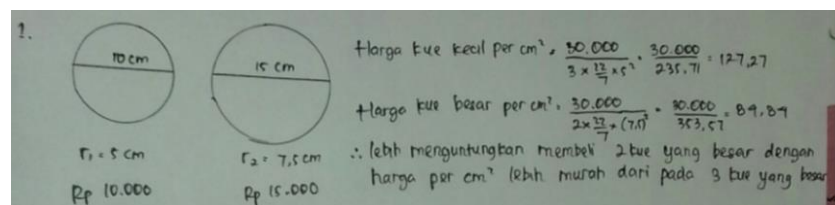 1.
10 cm
15 cm
r₁ = 5 cm
r₂ = 7,5 cm
Rp 10.000
Rp 15.000
Harga kue kecil per cm² = 30.000 / (3 × 22/7 × 5²) = 30.000 / 235,71 = 127,27
Harga kue besar per cm² = 30.000 / (2 × 22/7 × (7,5)²) = 30.000 / 353,57 = 84,84
∴ lebih menguntungkan membeli 2 kue yang besar dengan
harga per cm² lebih murah dari pada 3 kue yang besar